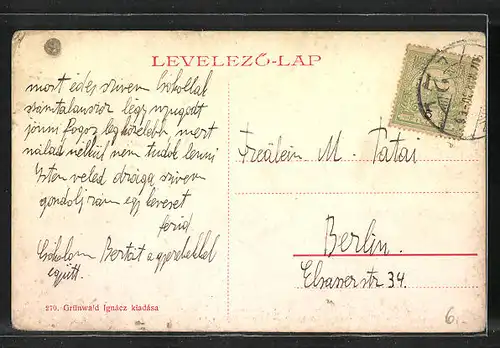 LEVELEZŐ-LAP
most édes szivem Csókollak
számtalanszor légy nyugodt
jönni fogok legközelebb mert
nálad nélkül nem tudok lenni
Isten veled drága szivem
gondolj rám egy keveset
ferid
Csókolom Bertát a gyerekekkel
együtt.
Fräulein M. Tatai
Berlin.
Elsasserstr 34.
279. Grünwald Ignácz kiadása
6.-